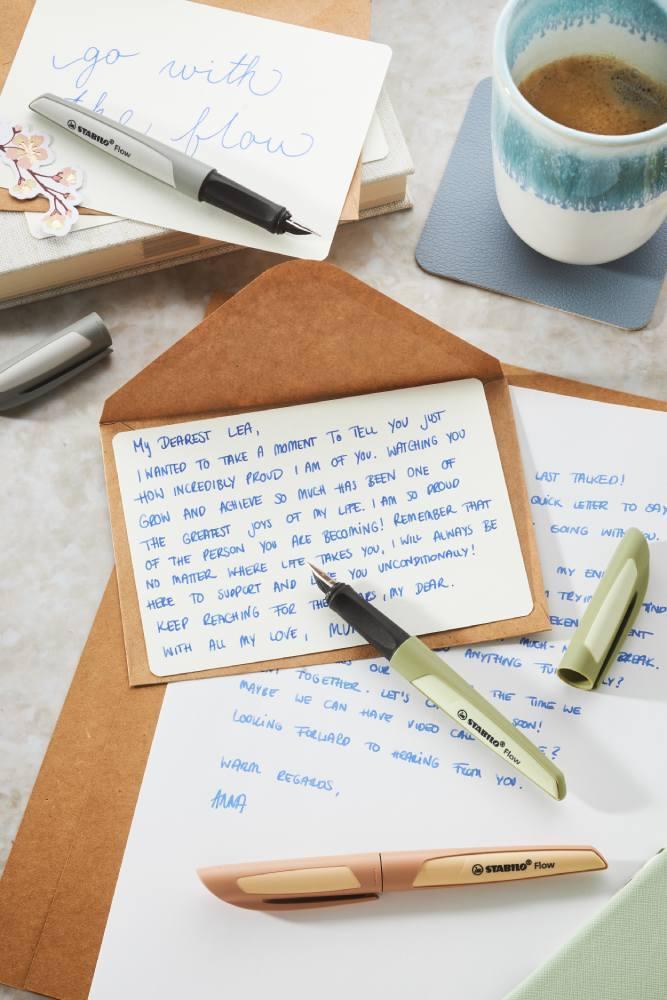 go with
the flow
STABILO® Flow
My DEAREST LEA,
I WANTED TO TAKE A MOMENT TO TELL YOU JUST
HOW INCREDIBLY PROUD I AM OF YOU. WATCHING YOU
GROW AND ACHIEVE SO MUCH HAS BEEN ONE OF
THE GREATEST JOYS OF MY LIFE. I AM SO PROUD
OF THE PERSON YOU ARE BECOMING! REMEMBER THAT
NO MATTER WHERE LIFE TAKES YOU, I WILL ALWAYS BE
HERE TO SUPPORT AND YOU UNCONDITIONALLY!
KEEP REACHING FOR THE , MY DEAR.
WITH ALL MY LOVE,
LAST TALKED!
QUICK LETTER TO SAY
GOING WITH YOU.
MY
TOGETHER. LET'S THE TIME WE
MAYBE WE CAN HAVE VIDEO CALL SOON!
LOOKING FORWARD TO HEARING FROM YOU.
WARM REGARDS,
ANNA
STABILO® Flow
STABILO® Flow